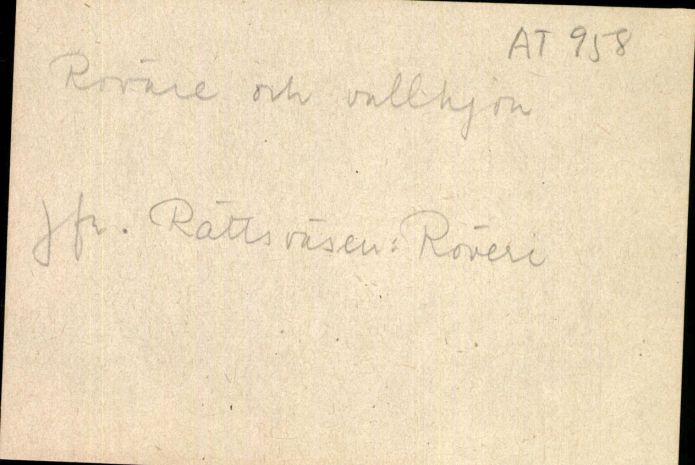 AT 958
Rövare och vallhjon
Jfr. Rättsväsen: Röveri